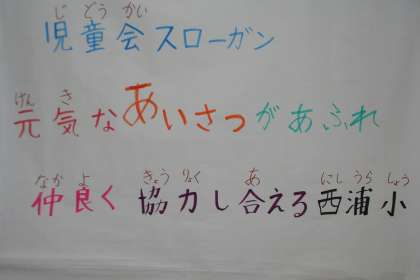 じどうかい
児童会スローガン
げんき
元気なあいさつがあふれ
なかよ きょうりょく あ にしうらしょう
仲良く 協力し合える西浦小